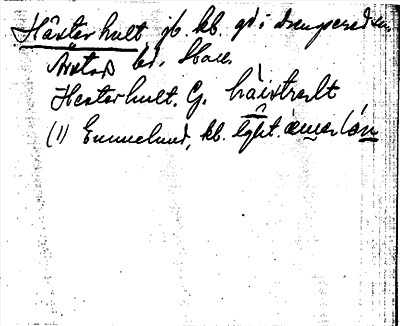 Hästerhult jb. kb. gd i Drengsered sn.
Årstad hd. Hall.
Hesterhult. G. håistrølt
(1) Emmelund, kb. lght. æmərlón